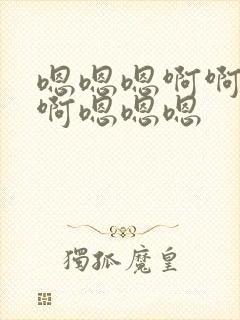 嗯嗯嗯啊啊
啊嗯嗯嗯
獨孤魔皇